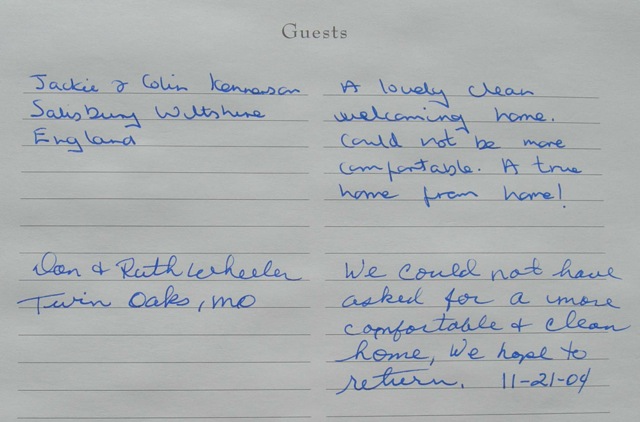 Guests
Jackie & Colin Kennerson
Salisbury Wiltshire
England
A lovely clean
welcoming home.
Could not be more
comfortable. A true
home from home!
Don & Ruth Wheeler
Twin Oaks, MO
We could not have
asked for a more
comfortable & clean
home, We hope to
return. 11-21-04